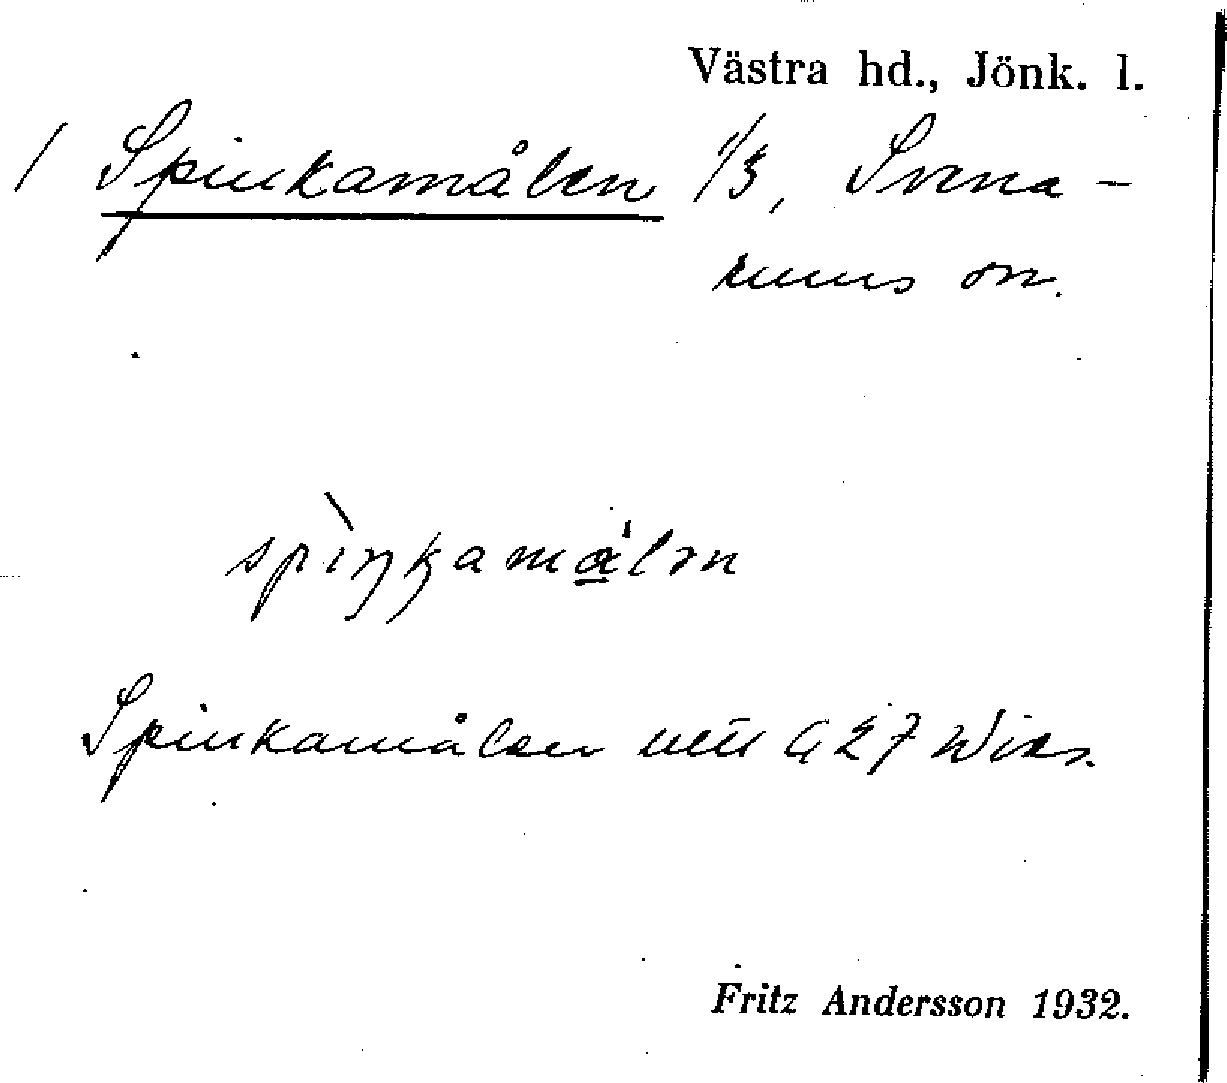 Västra hd., Jönk. l.
/ Spinkamålen 1/3, Svena-
rums sn.
spìŋkamα̲̍lən
Spinkamålen 427 Wiks.
Fritz Andersson 1932.